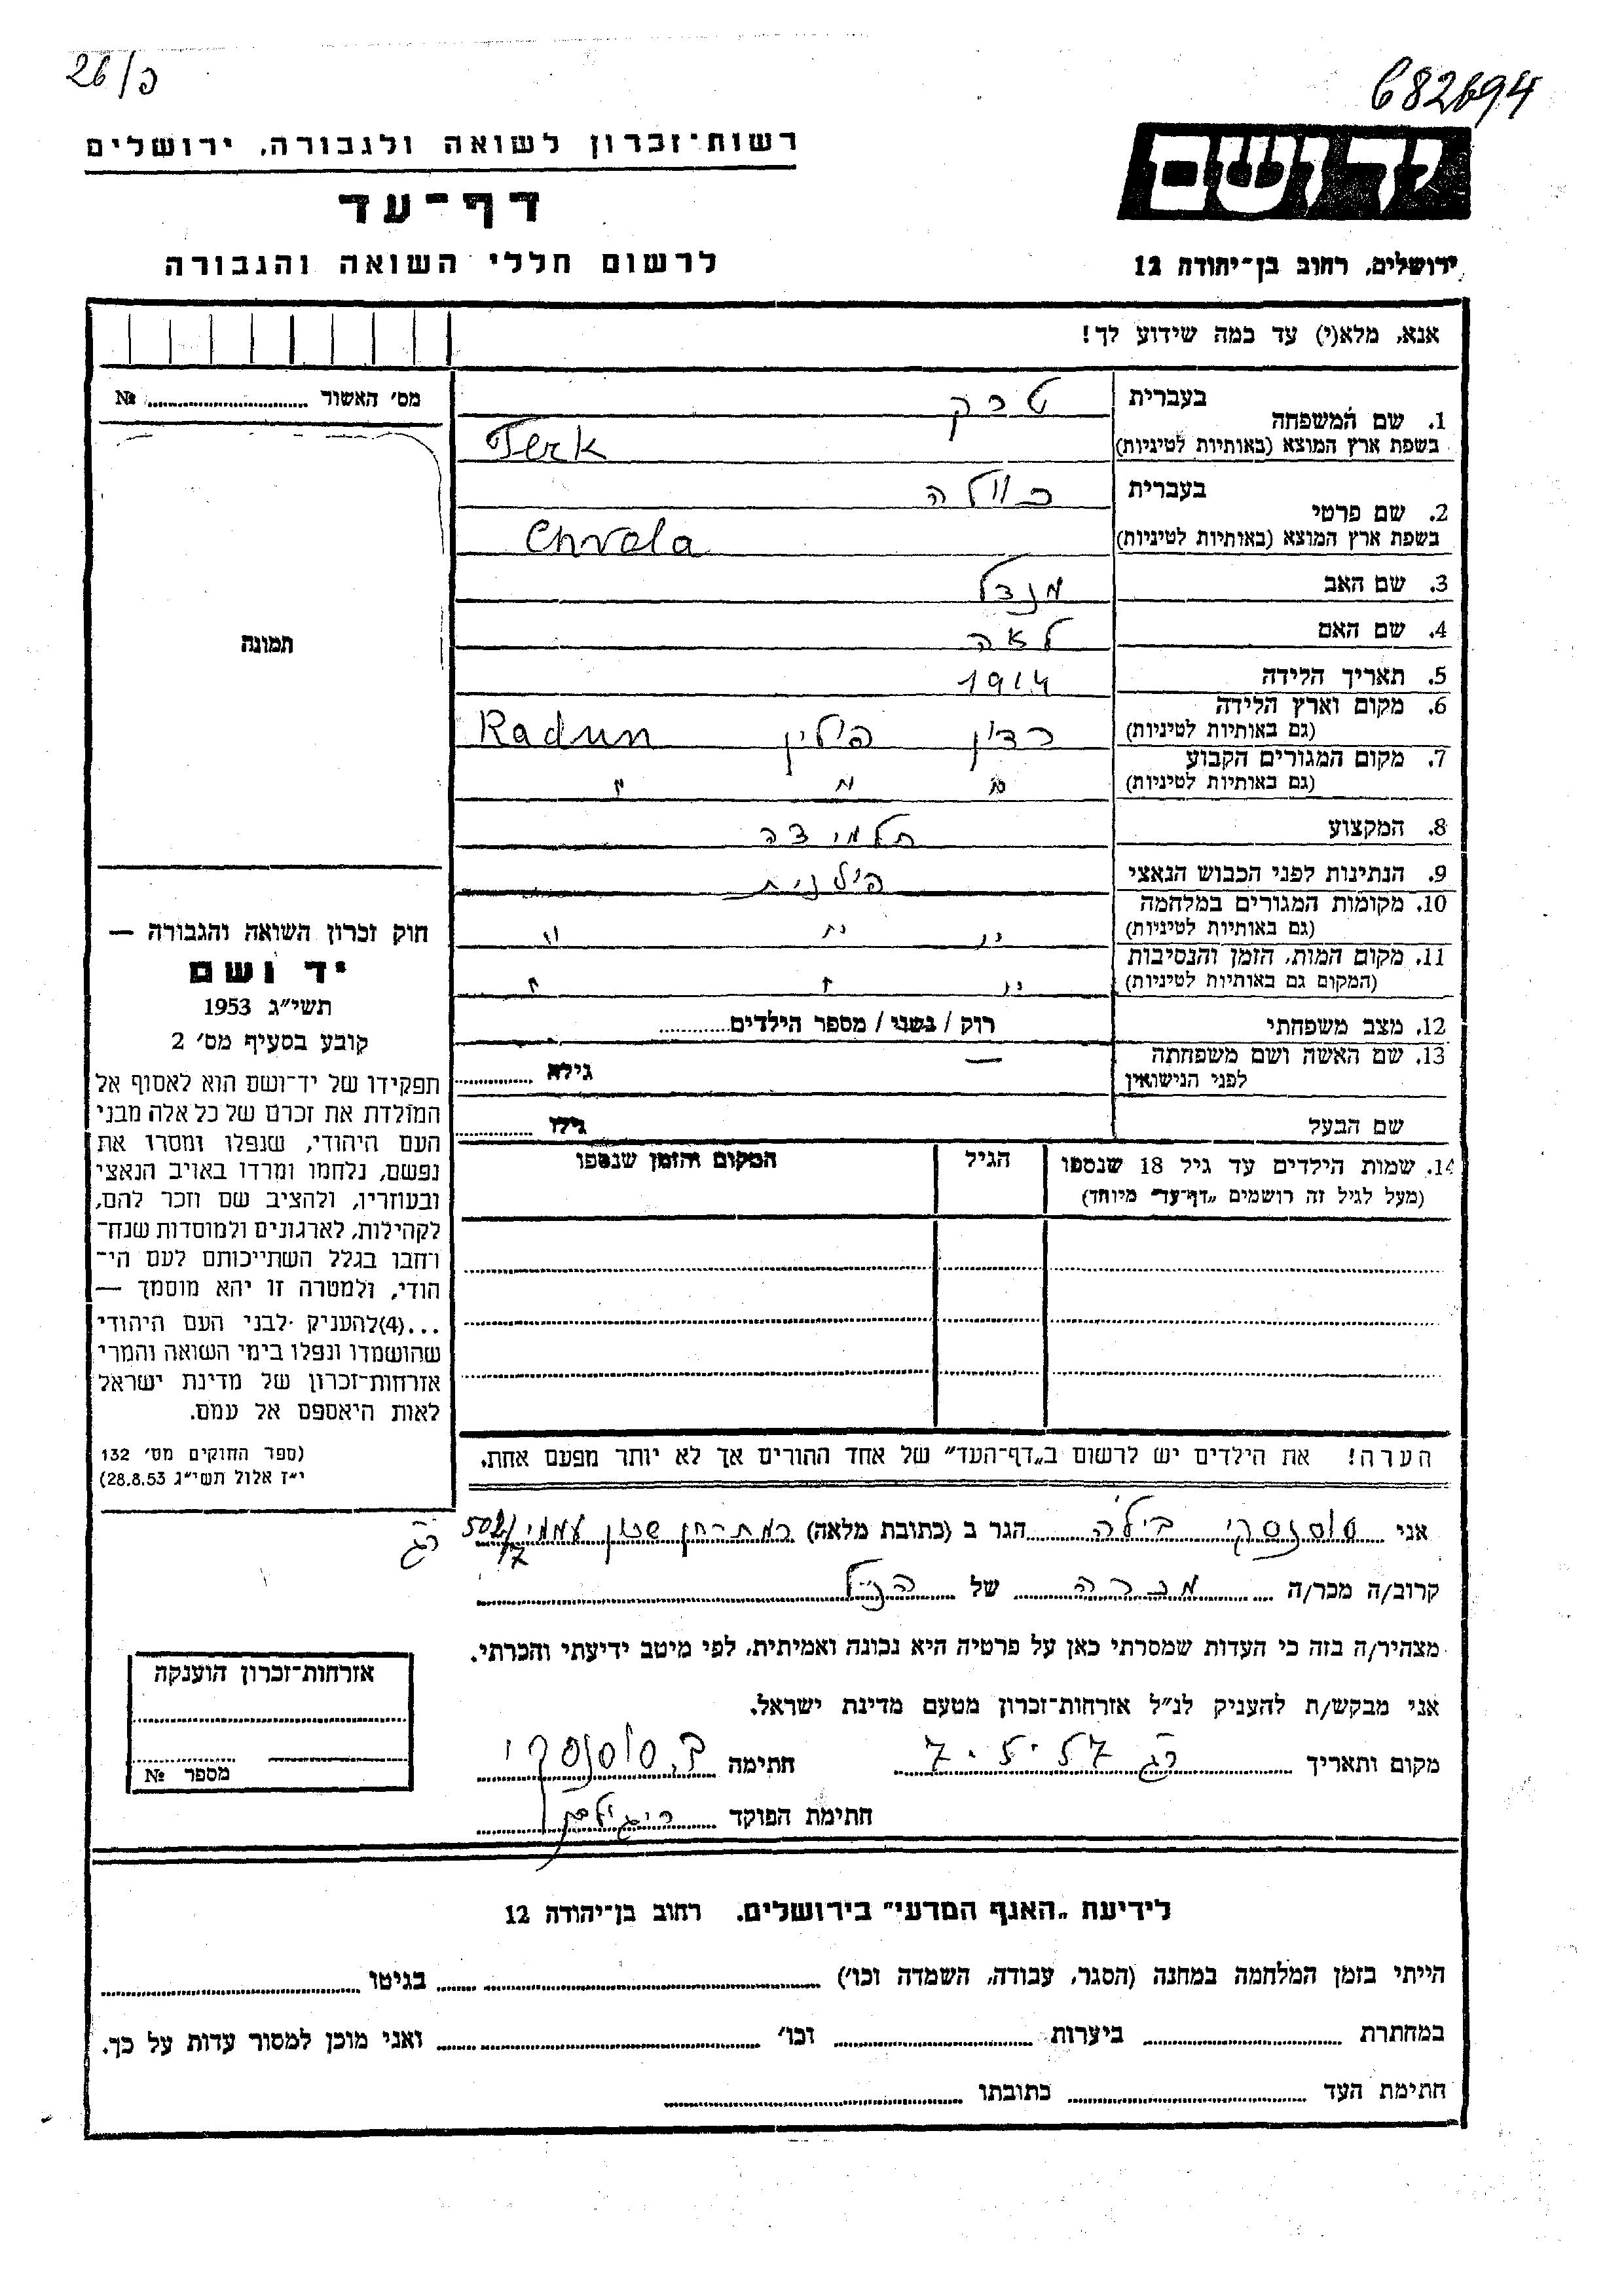 26/כ
682694
רשות־זכרון לשואה ולגבורה, ירושלים
ידושם
דף־עד
לרשום חללי השואה והגבורה
ירושלים, רחוב בן־יהודה 12
אנא, מלא(י) עד כמה שידוע לך!
מס׳ האשור ........ №
תמונה
1. שם המשפחה
בעברית טרק
בשפת ארץ המוצא (באותיות לטיניות) Terk
2. שם פרטי
בעברית כוולה
בשפת ארץ המוצא (באותיות לטיניות) Chvola
3. שם האב מנדל
4. שם האם לאה
5. תאריך הלידה 1914
6. מקום וארץ הלידה
(גם באותיות לטיניות) רדון פולין Radun
7. מקום המגורים הקבוע
(גם באותיות לטיניות) " " "
8. המקצוע תלמידה
9. הנתינות לפני הכבוש הנאצי פולנית
10. מקומות המגורים במלחמה
(גם באותיות לטיניות) " " "
11. מקום המות, הזמן והנסיבות
(המקום גם באותיות לטיניות) " " "
12. מצב משפחתי רוק / נשוי / מספר הילדים........
13. שם האשה ושם משפחתה
לפני הנישואין — גילא ........
שם הבעל גילו ........
14. שמות הילדים עד גיל 18 שנספו
(מעל לגיל זה רושמים „דף־עד״ מיוחד)
הגיל
המקום והזמן שנספו
חוק זכרון השואה והגבורה —
יד ושם
תשי״ג 1953
קובע בסעיף מס׳ 2
תפקידו של יד־ושם הוא לאסוף אל
המולדת את זכרם של כל אלה מבני
העם היהודי, שנפלו ומסרו את
נפשם, נלחמו ומרדו באויב הנאצי
ובעוזריו, ולהציב שם וזכר להם,
לקהילות, לארגונים ולמוסדות שנח־
רחבו בגלל השתייכותם לעם הי־
הודי, ולמטרה זו יהא מוסמך —
...(4)להעניק לבני העם היהודי
שהושמדו ונפלו בימי השואה והמרי
אזרחות־זכרון של מדינת ישראל
לאות היאספם אל עמם.
(ספר החוקים מס׳ 132
י״ז אלול תשי״ג 28.8.53)
הערה! את הילדים יש לרשום ב„דף־העד״ של אחד ההורים אך לא יותר מפעם אחת.
אני סוסנסקי בילה הגר ב (כתובת מלאה) שכון עממי 502/17 רג
קרוב/ה מכר/ה מכרה של הנ״ל
מצהיר/ה בזה כי העדות שמסרתי כאן על פרטיה היא נכונה ואמיתית, לפי מיטב ידיעתי והכרתי.
אני מבקש/ת להעניק לנ״ל אזרחות־זכרון מטעם מדינת ישראל.
מקום ותאריך רג 7.5.57 חתימה ב. סוסנסקי
חתימת הפוקד
אזרחות־זכרון הוענקה
מספר №
לידיעת „האגף המדעי״ בירושלים, רחוב בן־יהודה 12
הייתי בזמן המלחמה במחנה (הסגר, עבודה, השמדה וכו׳) ........ בגיטו ........
במחתרת ........ ביערות ........ וכו׳ ........ ואני מוכן למסור עדות על כך.
חתימת העד ........ כתובתו ........